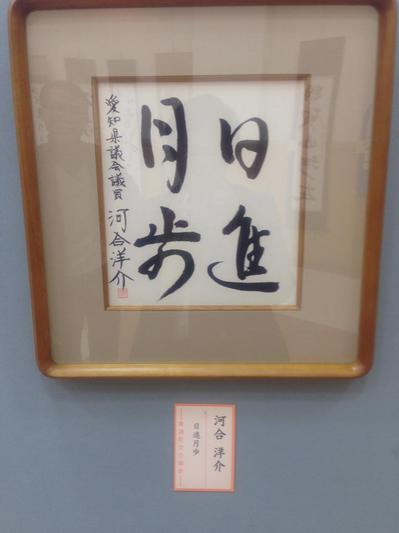 日進
月歩
愛知県議会議員 河合洋介
河合 洋介
日進月歩